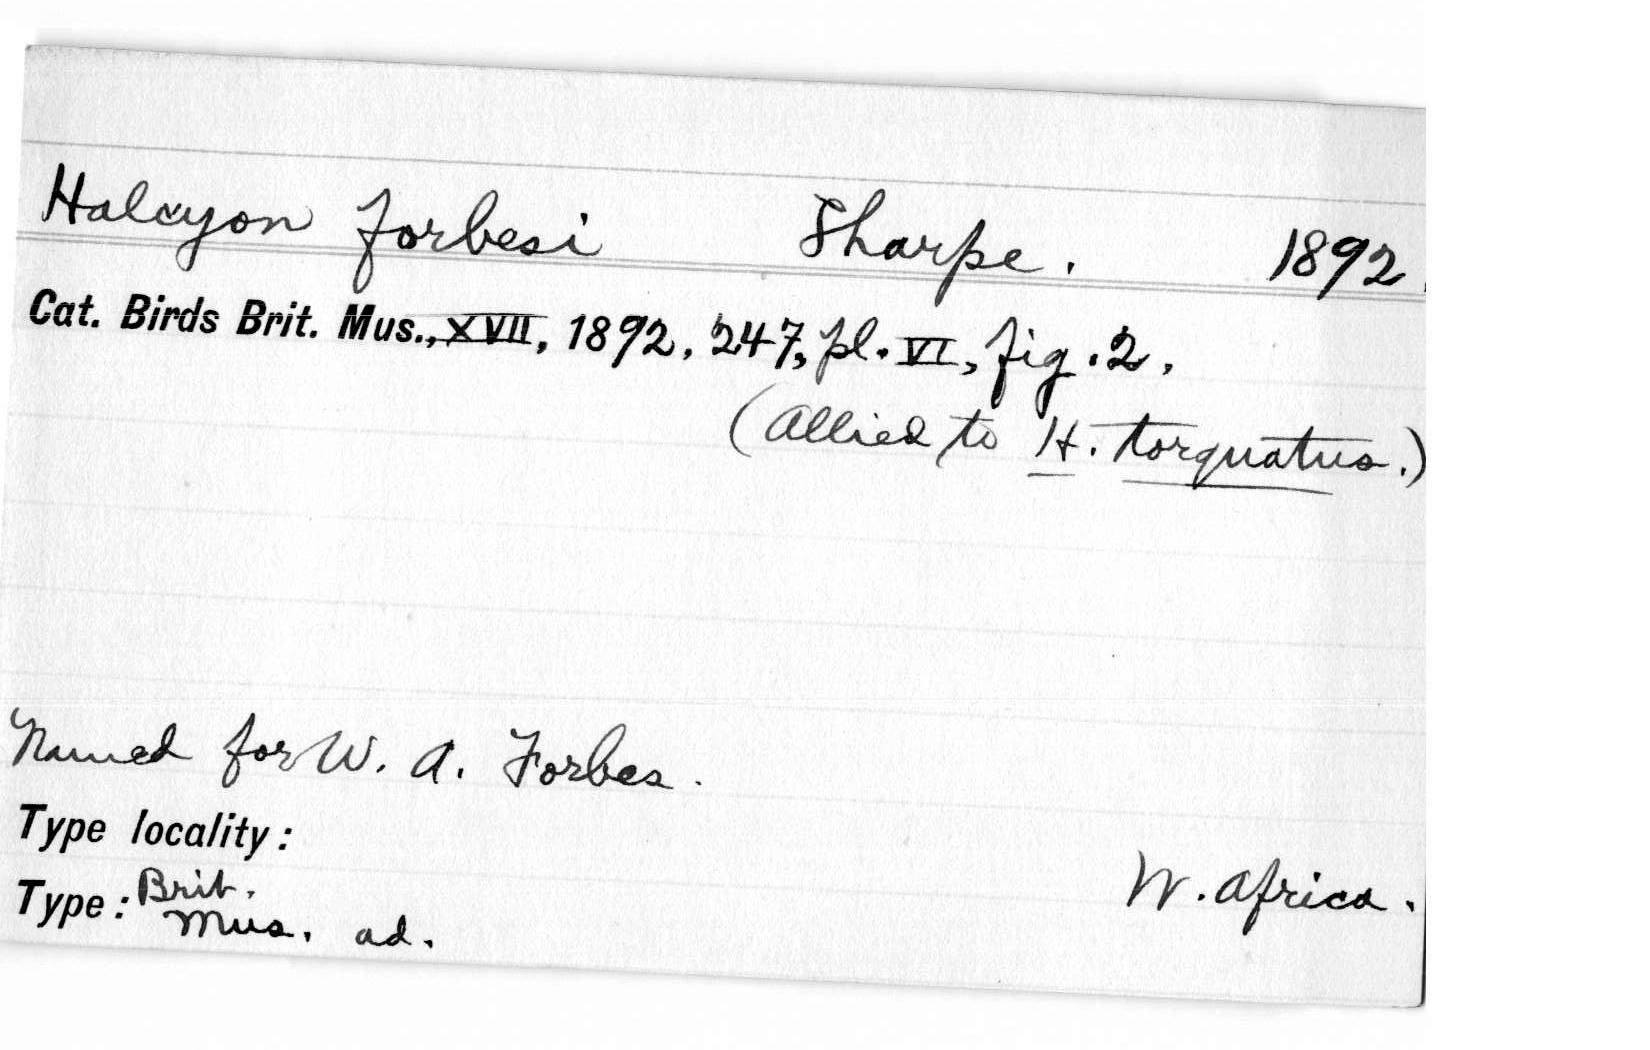 Halcyon forbesi Sharpe. 1892.
Cat. Birds Brit. Mus., XVII, 1892, 247, pl. VI, fig. 2.
(Allied to H. torquatus.)
Named for W. A. Forbes.
Type locality:
W. Africa.
Type: Brit.
Mus. ad.